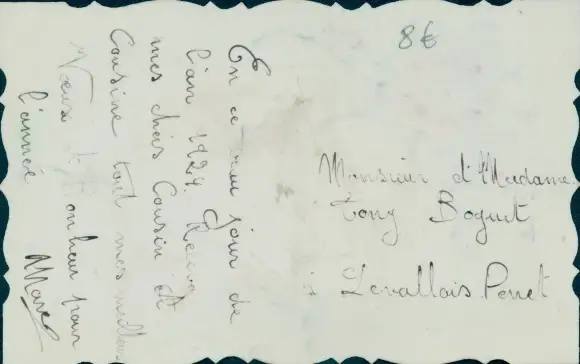 En ce jour de
l'an 1924. Recevez
mes chers Cousin et
Cousine tout mes meilleurs
Vœux et Bonheur pour
l'année
Marc
8€
Monsieur et Madame
Tony Boguet
à Levallois Perret